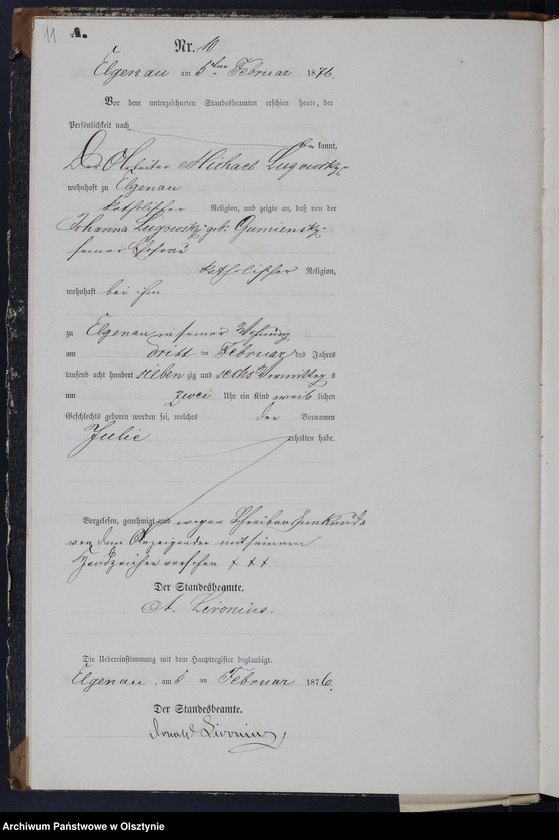 11
A.
Nr. 10
Elgenau am 5ten Februar 1876.
Vor dem unterzeichneten Standesbeamten erschien heute, der
Persönlichkeit nach
kannt,
Der Arbeiter Michael Lugowski
wohnhaft zu Elgenau
katholischer Religion, und zeigte an, daß von der
Johanna Lugowski geb: Gumienski
seiner Ehefrau
katholischer Religion,
wohnhaft bei ihm
zu Elgenau in seiner Wohnung
am dritt en Februar des Jahres
tausend acht hundert sieben zig und sechs Vormittags
um zwei Uhr ein Kind weib lichen
Geschlechts geboren worden sei, welches den Vornamen
Julie erhalten habe.
Vorgelesen, genehmigt und wegen Schreibensunkunde
von dem Anzeigenden mit seinem
Handzeichen versehen † † †
Der Standesbeamte.
A. Livonius.
Die Uebereinstimmung mit dem Hauptregister beglaubigt.
Elgenau, am 5 ten Februar 1876.
Der Standesbeamte.
Livonius
Archiwum Państwowe w Olsztynie